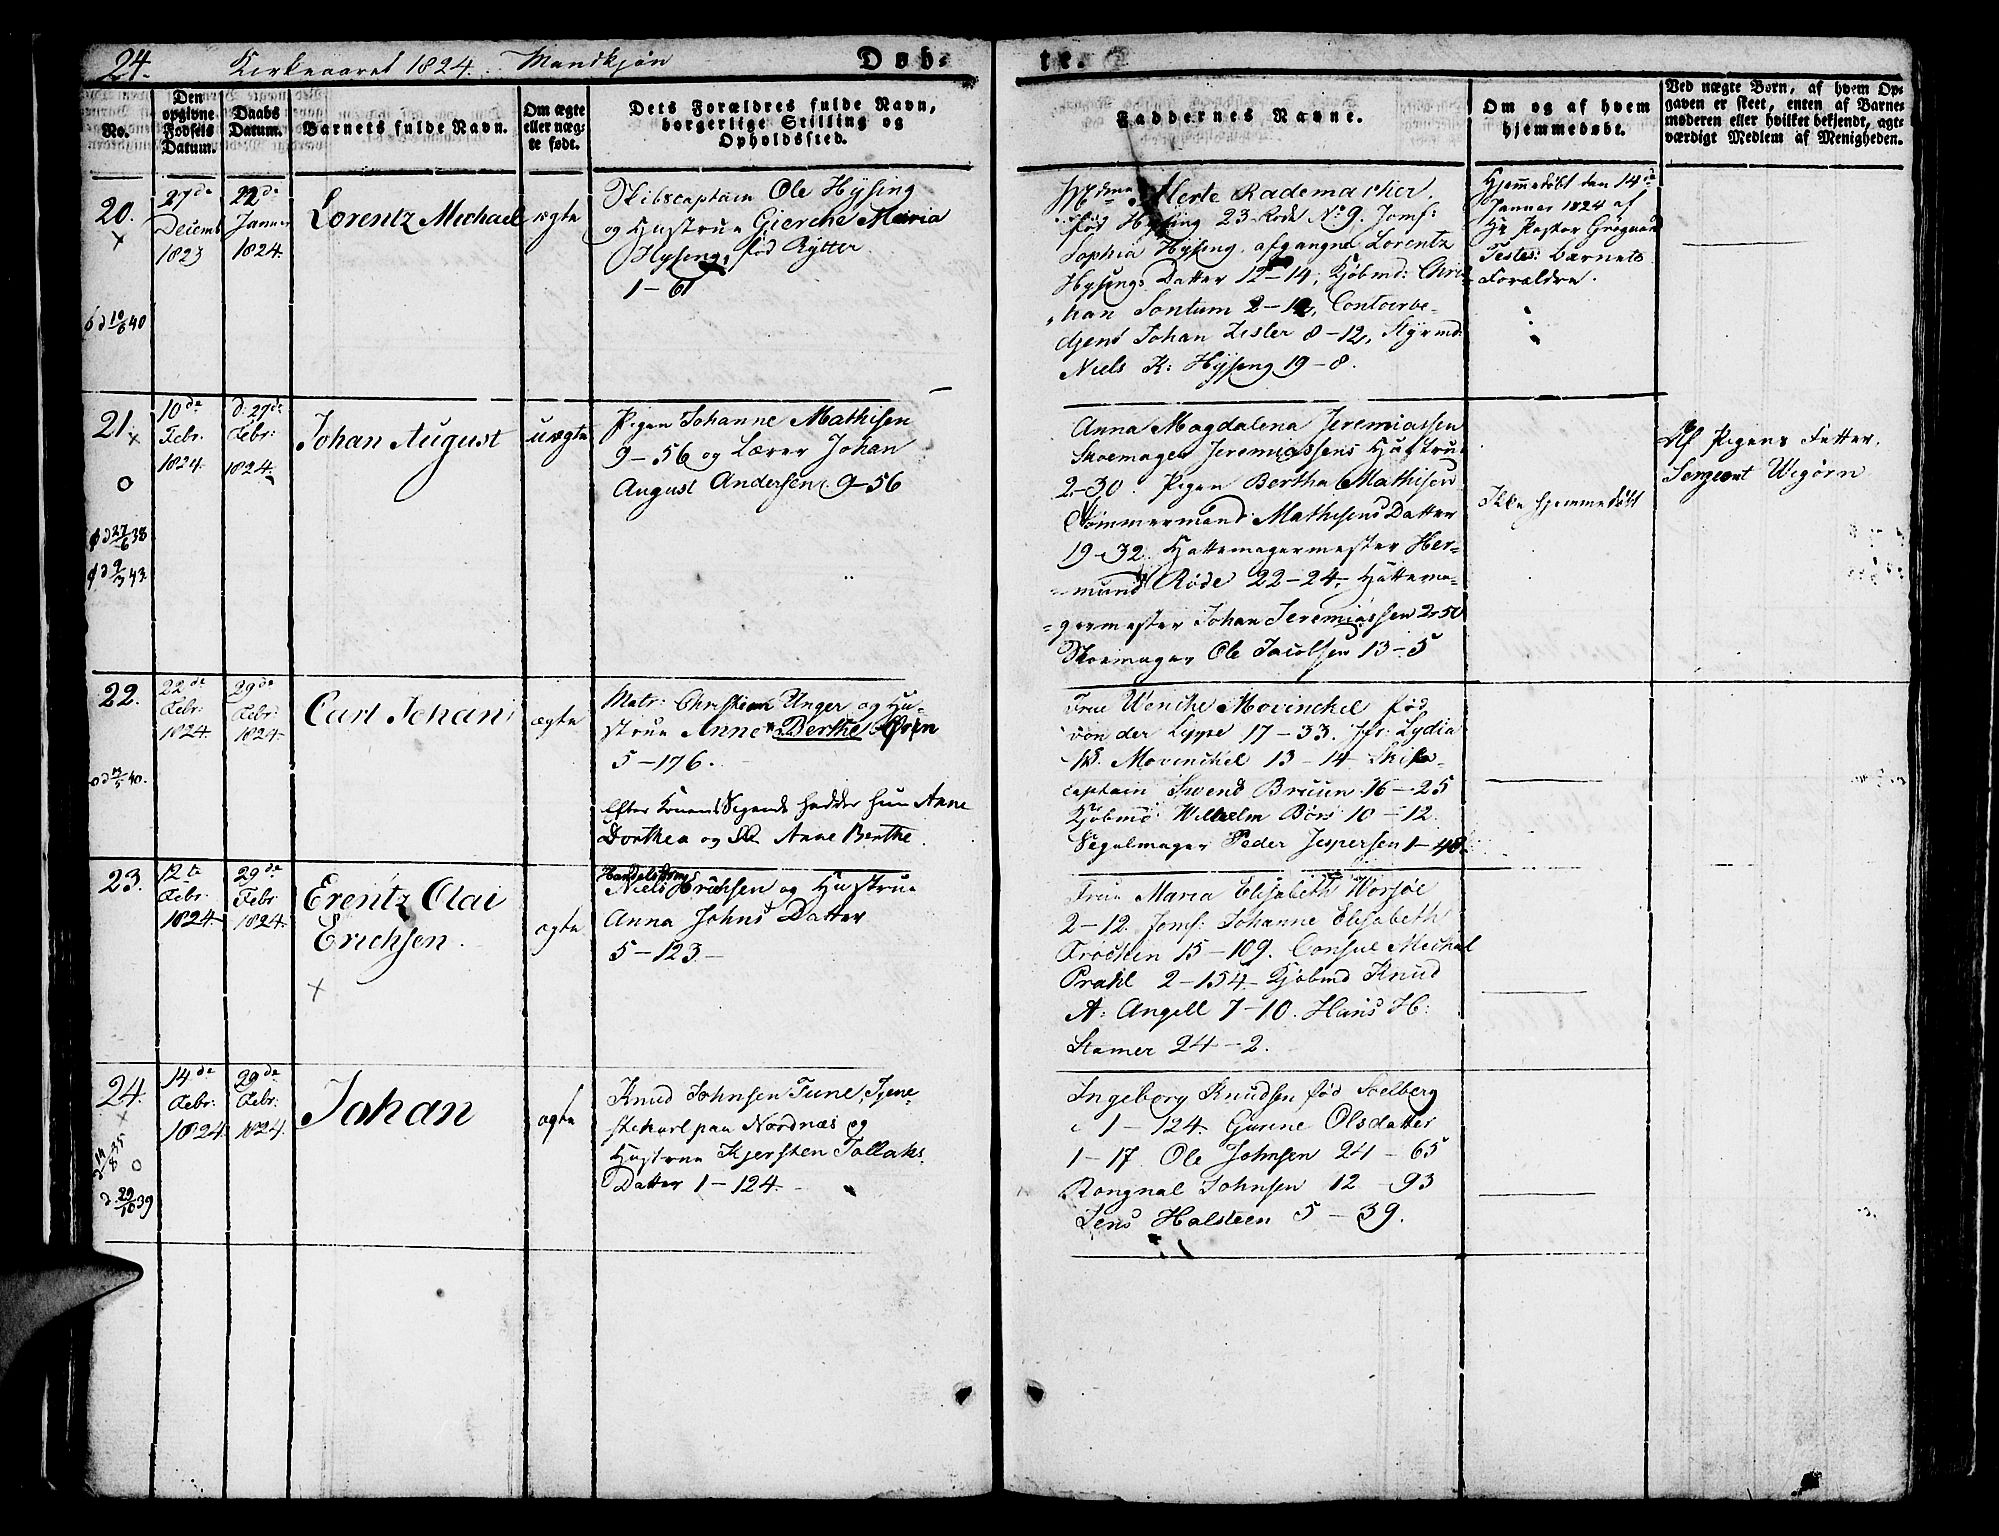 24. Kirkeaaret 1824. Mandkjøn Døb-
te.
No.
Den opgivne Fødsels Datum.
Daabs Datum.
Barnets fulde Navn.
Om ægte eller uægte født.
Dets Forældres fulde Navn, borgerlige Stilling og Opholdssted.
Faddernes Navne.
Om og af hvem hjemmedøbt.
Ved uægte Børn, af hvem Opgaven er skeet, enten af Barnemoderen eller hvilket bekjendt, agtværdigt Medlem af Menigheden.
20.
27de
Decemb
1823
22de
Januar
1824.
Lorentz Michael
ægte
Skibscaptain Ole Hysing
og Hustrue Giertche Maria
Hysing, fød Rytter
1-61
Mdme Merte Rademacher,
fød Hysing 23 Rode No 9. Jomf:
Sophia Hysing, afgangne Lorentz
Hysings Datter 12-14, Kjøbmd: Chri-
han Sontum 2-12, Contoirbe-
tjent Johan Zesler 8-12, Styrmd:
Niels K: Hysing 19-8.
Hjemmedøbt den 14de
Januar 1824 af
Hr Pastor
Testes: Barnets
Forældre.
21.
10de
Febr.
1824.
d: 27de
Febr:
1824.
Johan August
uægte
Pigen Johanne Mathisen
9-56 og Lærer Johan
August Andersen 9-56
Anna Magdalena Jeremiassen
Skoemager Jeremiassens Hustrue
2-30. Pigen Bertha Mathisen
Tømmermand Mathisens Datter
19-32. Hattemagermester Her-
mund Røde 22-24, Hattema-
germester Johan Jeremiassen 2-50
Skoemager Ole Jacobsen 13-5
Ikke hjemmedøbt
Af Pigens Fetter,
Sergeant Wegörn
22.
22de
Febr:
1824.
29de
Febr:
1824.
Carl Johan
ægte
Matr: Christian Unger og Hu-
strue Anne Berthe Øvren
5-176.
Efter Konens Sigende hedder hun Anne
Dorthea og ikke Anne Berthe.
Frue Wenche Mowinckel fød
von der Lippe 17-33. Jfr: Lydia
W. Mowinckel 13-14 Skibs-
captain Swend Bruun 16-25
Kjøbmd: Wilhelm Børs 10-12.
Segelmager Peder Jespersen 1-48.
23.
12te
Febr.
1824
29de
Febr
1824.
Erentz Olai
Erichsen.
ægte
Handelsborger
Niels Erichsen og Hustrue
Anna Johns Datter
5-123.
Frue Maria Elisabeth Worsøe
2-12. Jomf: Johanne Elisabeth
Frøchen 15-109. Consul Michael
Prahl 2-154. Kjøbmd Knud
A: Angell 7-10. Hans H:
Stamer 24-2.
24.
14de
Febr:
1824.
29de
Febr.
1824.
Johan
ægte
Knud Johnsen Tune, Tjene-
stekarl paa Nordnæs og
Hustrue Kjersten Tollaks
Datter 1-124.
Ingeborg Knudsen fød Soelberg
1-124. Gurine Olsdatter
1-17 Ole Johnsen 24-65
Rongnal Johnsen 12-93
Jens Halsteen 5-39.